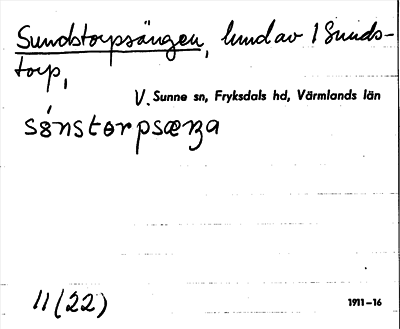 Sundstorpsängen, lund av 1 Sunds-
torp,
V. Sunne sn, Fryksdals hd, Värmlands län
sǿnstɵrpsæŋa
11 (22)
1911-16